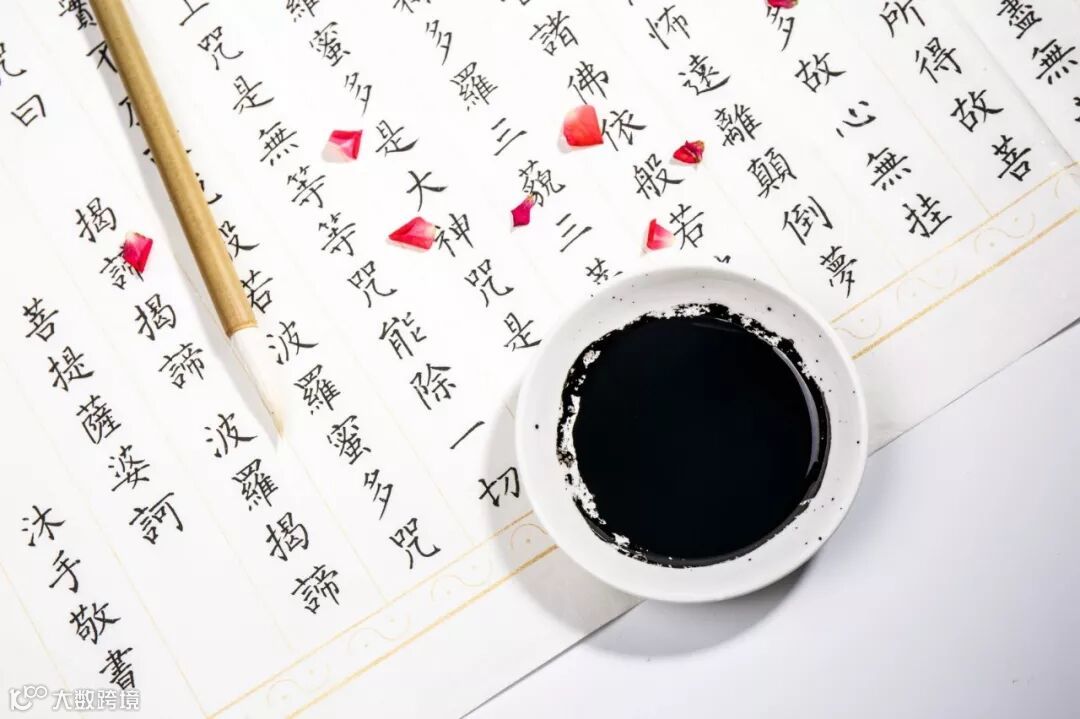 盡無
所得故菩
多故心無挂
怖遠離顛倒夢
諸佛依般若
多羅三藐三菩
羅蜜多是大神咒是
上咒是無等等咒能除一切
實不般若波羅蜜多咒
咒曰 揭諦揭諦 波羅揭諦
菩提薩婆訶
沐手敬書
大数跨境